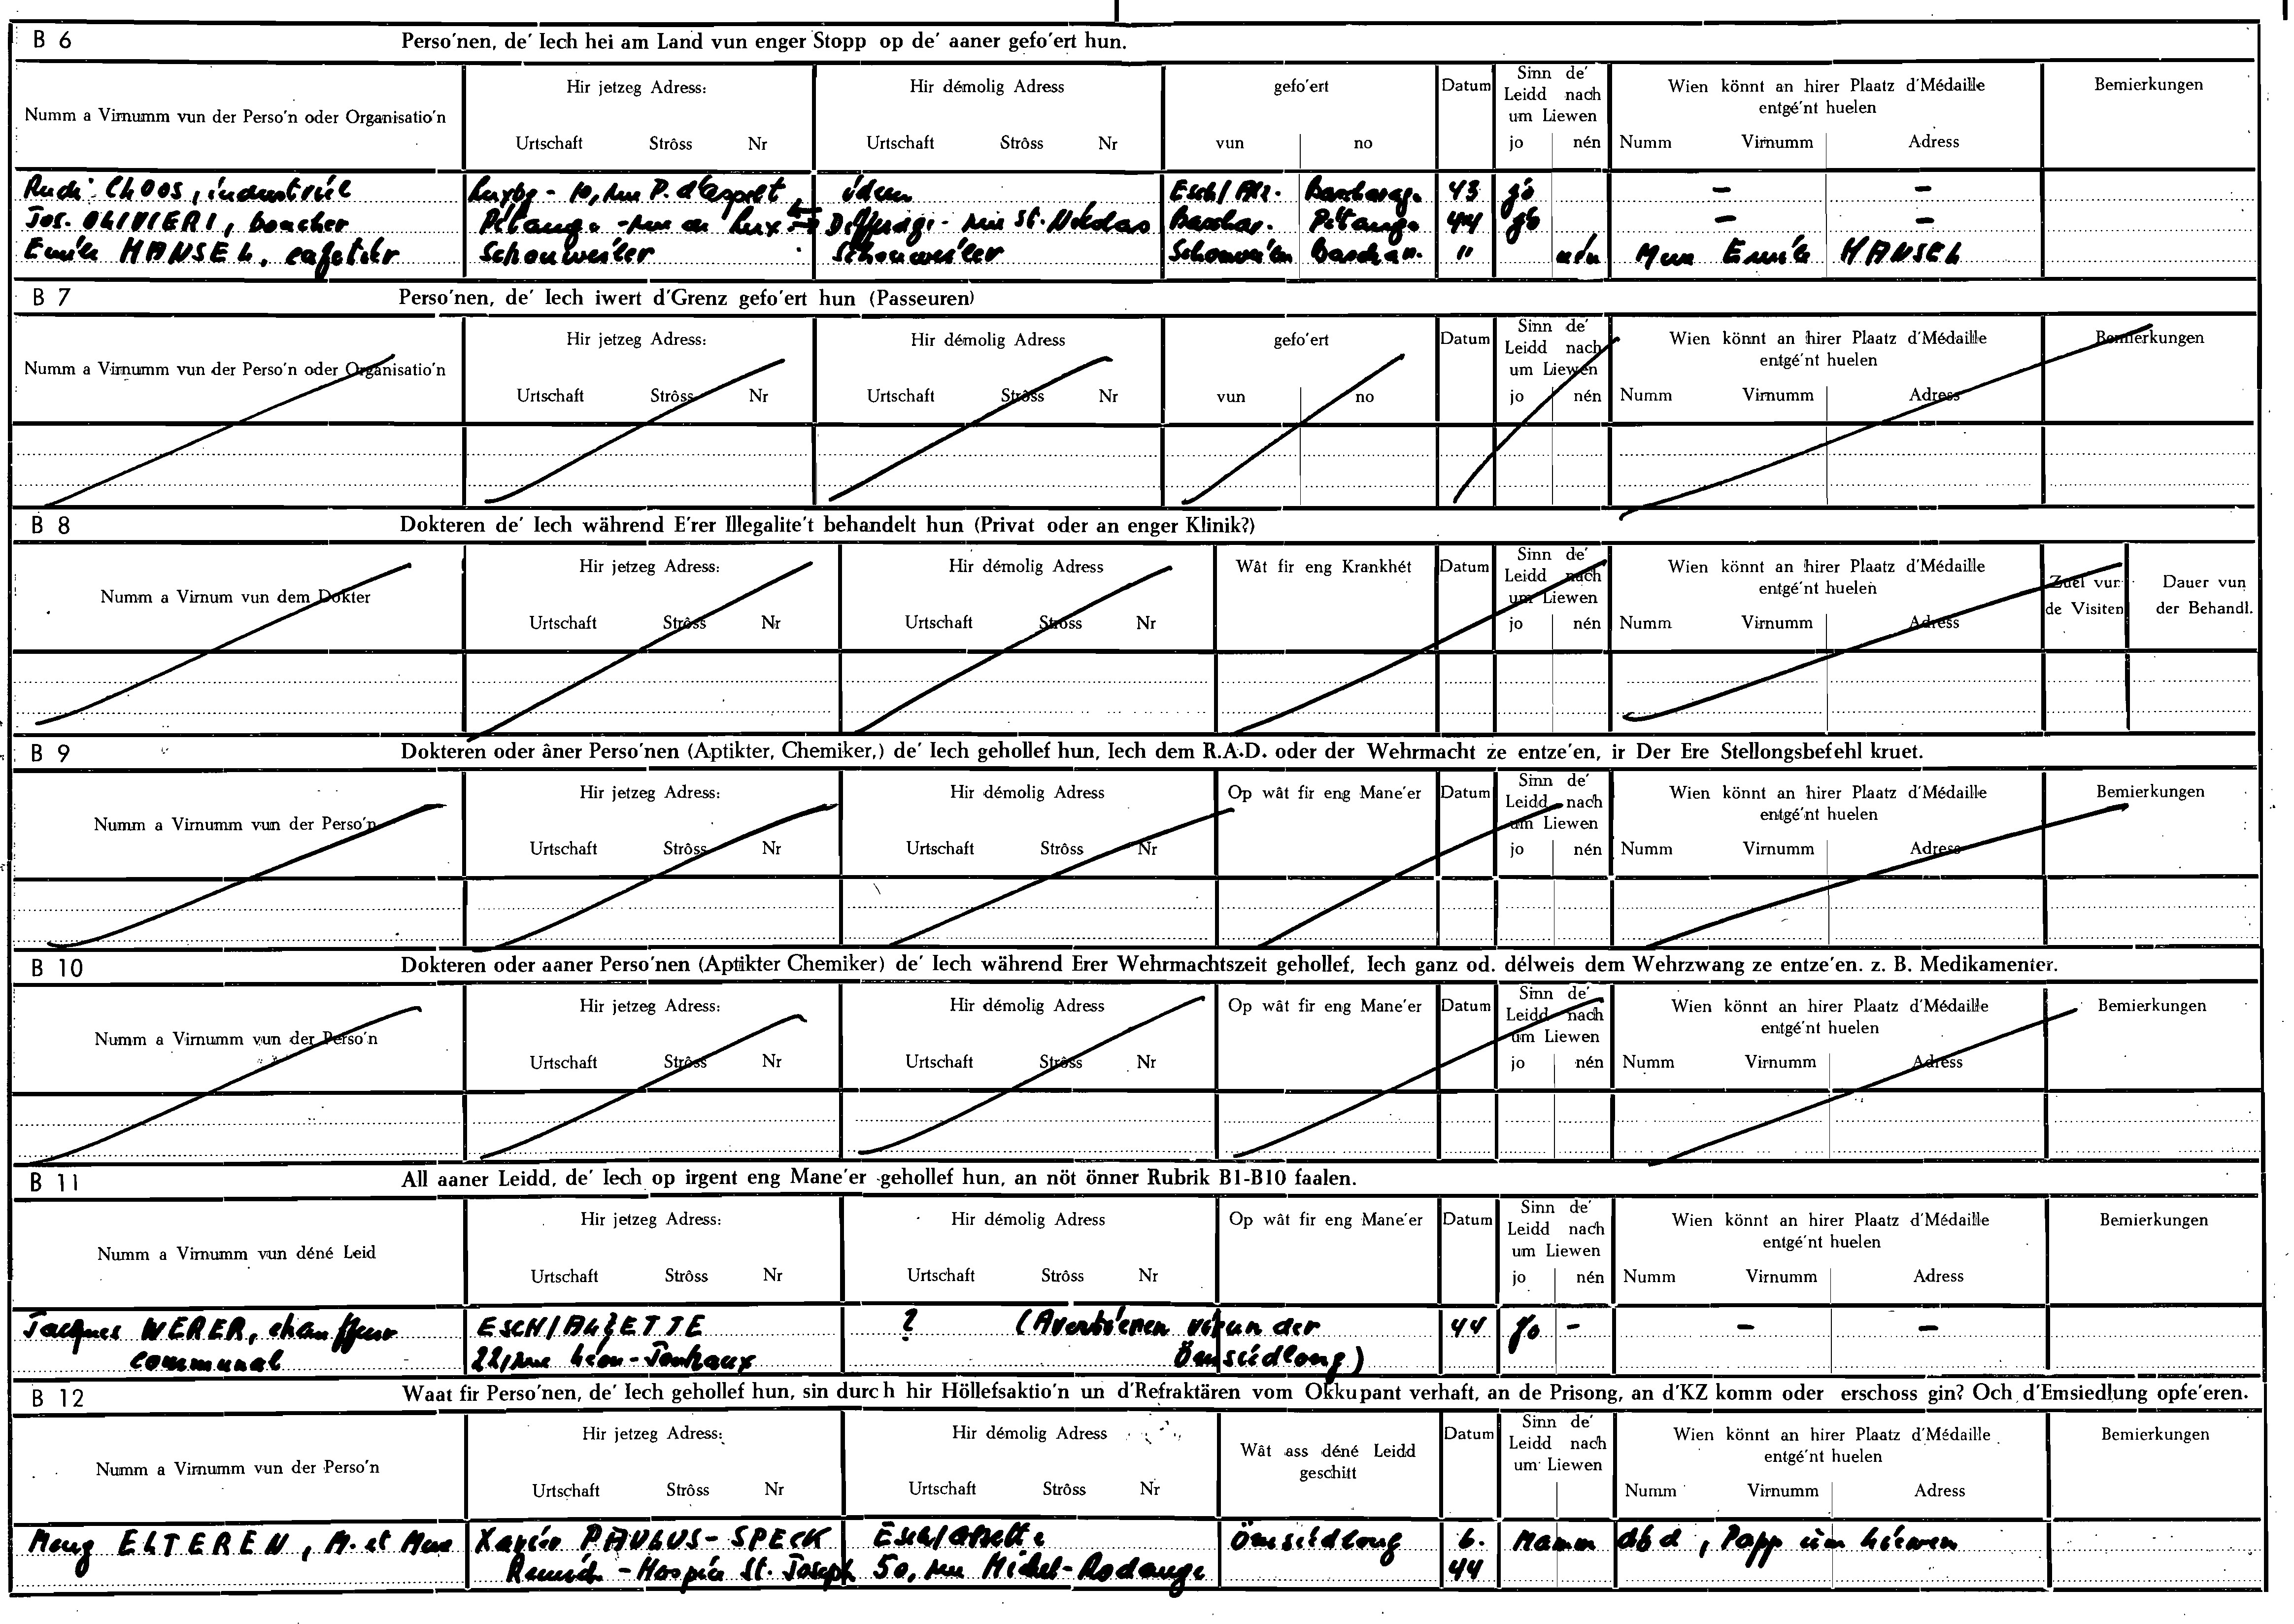 B 6 Perso'nen, de' Iech hei am Land vun enger Stopp op de' aaner gefo'ert hun.
Numm a Virnumm vun der Perso'n oder Organisatio'n Hir jetzeg Adress: Urtschaft Strôss Nr Hir démolig Adress Urtschaft Strôss Nr gefo'ert vun no Datum Sinn de' Leidd nach um Liewen jo nén Wien könnt an hirer Plaatz d'Médaille entgé'nt huelen Numm Virnumm Adress Bemierkungen
Rudi CLOOS, industriel Luxbg - 10, rue P. d'Aspelt idem Esch/Alz. Bascharag. 43 jo - -
Jos. OLIVIERI, boucher Pétange - rue de Lux. Differdg. - rue St. Nikolas Baschar. Pétange 44 jo - -
Emile HANSEL, cafetier Schouweiler Schouweiler Schouweiler Baschar. " nén Mme Emile HANSEL
B 7 Perso'nen, de' Iech iwert d'Grenz gefo'ert hun (Passeuren)
Numm a Virnumm vun der Perso'n oder Organisatio'n Hir jetzeg Adress: Urtschaft Strôss Nr Hir démolig Adress Urtschaft Strôss Nr gefo'ert vun no Datum Sinn de' Leidd nach um Liewen jo nén Wien könnt an hirer Plaatz d'Médaille entgé'nt huelen Numm Virnumm Adress Bemierkungen
B 8 Dokteren de' Iech während E'rer Illegalite't behandelt hun (Privat oder an enger Klinik?)
Numm a Virnum vun dem Dokter Hir jetzeg Adress: Urtschaft Strôss Nr Hir démolig Adress Urtschaft Strôss Nr Wât fir eng Krankhét Datum Sinn de' Leidd nach um Liewen jo nén Wien könnt an hirer Plaatz d'Médaille entgé'nt huelen Numm Virnumm Adress Zuel vun de Visiten Dauer vun der Behandl.
B 9 Dokteren oder âner Perso'nen (Aptikter, Chemiker,) de' Iech gehollef hun, Iech dem R.A.D. oder der Wehrmacht ze entze'en, ir Der Ere Stellongsbefehl kruet.
Numm a Virnumm vun der Perso'n Hir jetzeg Adress: Urtschaft Strôss Nr Hir démolig Adress Urtschaft Strôss Nr Op wât fir eng Mane'er Datum Sinn de' Leidd nach um Liewen jo nén Wien könnt an hirer Plaatz d'Médaille entgé'nt huelen Numm Virnumm Adress Bemierkungen
B 10 Dokteren oder aaner Perso'nen (Aptikter Chemiker) de' Iech während Erer Wehrmachtszeit gehollef, Iech ganz od. délweis dem Wehrzwang ze entze'en. z. B. Medikamenter.
Numm a Virnumm vun der Perso'n Hir jetzeg Adress: Urtschaft Strôss Nr Hir démolig Adress Urtschaft Strôss Nr Op wât fir eng Mane'er Datum Sinn de' Leidd nach um Liewen jo nén Wien könnt an hirer Plaatz d'Médaille entgé'nt huelen Numm Virnumm Adress Bemierkungen
B 11 All aaner Leidd, de' Iech op irgent eng Mane'er gehollef hun, an nöt önner Rubrik B1-B10 faalen.
Numm a Virnumm vun déné Leid Hir jetzeg Adress: Urtschaft Strôss Nr Hir démolig Adress Urtschaft Strôss Nr Op wât fir eng Mane'er Datum Sinn de' Leidd nach um Liewen jo nén Wien könnt an hirer Plaatz d'Médaille entgé'nt huelen Numm Virnumm Adress Bemierkungen
Jacques WERER, chauffeur ESCH/ALZETTE ? (Averti'enen virun der 44 jo - - -
communal 22, rue Léon-Jouhaux Ömsiedlong)
B 12 Waat fir Perso'nen, de' Iech gehollef hun, sin durch hir Höllefsaktio'n un d'Refraktären vom Okkupant verhaft, an de Prisong, an d'KZ komm oder erschoss gin? Och d'Emsiedlung opfe'eren.
Numm a Virnumm vun der Perso'n Hir jetzeg Adress: Urtschaft Strôss Nr Hir démolig Adress Urtschaft Strôss Nr Wât ass déné Leidd geschitt Datum Sinn de' Leidd nach um Liewen Wien könnt an hirer Plaatz d'Médaille entgé'nt huelen Numm Virnumm Adress Bemierkungen
Meng ELTEREN, M. et Mme Xavier PAULUS-SPECK Esch/Alzette Ömsiedlong 6. Mamm dôd, Papp um Liewen
Remich - Hospice St. Joseph 50, rue Michel-Rodange 44